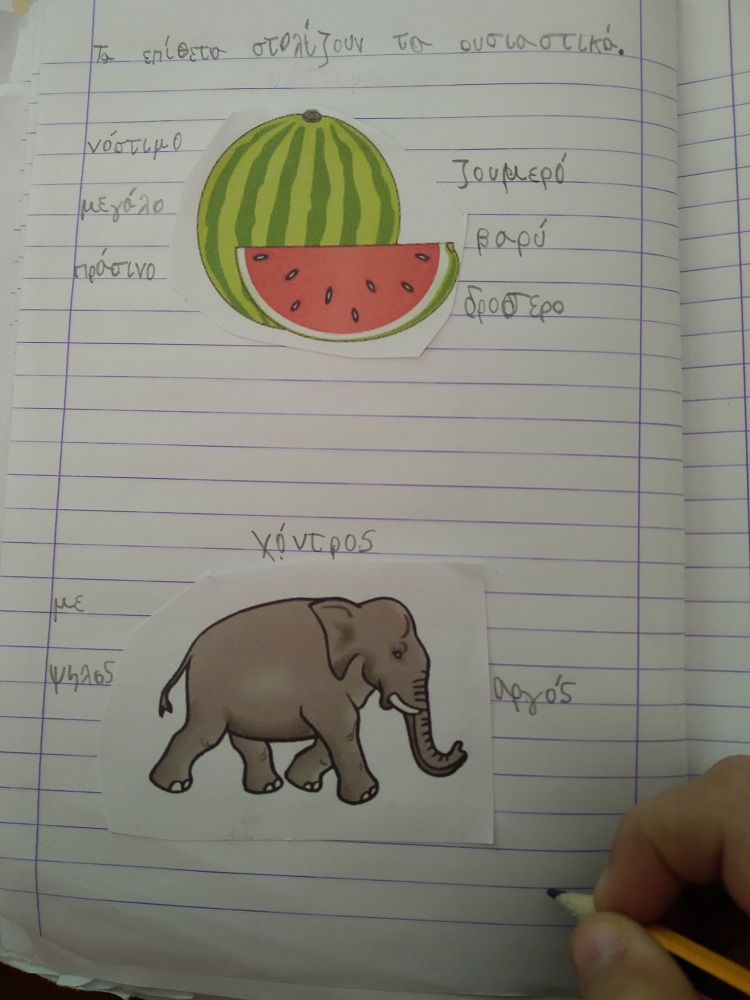 Τα επίθετα στολίζουν τα ουσιαστικά.
νόστιμο
μεγάλο
πράσινο
ζουμερό
βαρύ
δροσερο
χόντρος
με
ψηλος
αργός